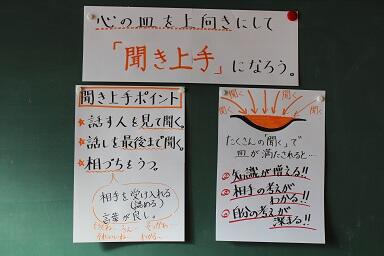 心の皿を上向きにして
「聞き上手」になろう。
聞き上手ポイント
★話す人を見て聞く。
★話しを最後まで聞く。
★相づちをうつ。
相手を受け入れる
(認める)
言葉が良し。
聞く 聞く 聞く 聞く
たくさんの「聞く」で
皿が満たされると…
①知識が増える!!
②相手の考えが
わかる!!
③自分の考えが
深まる!!